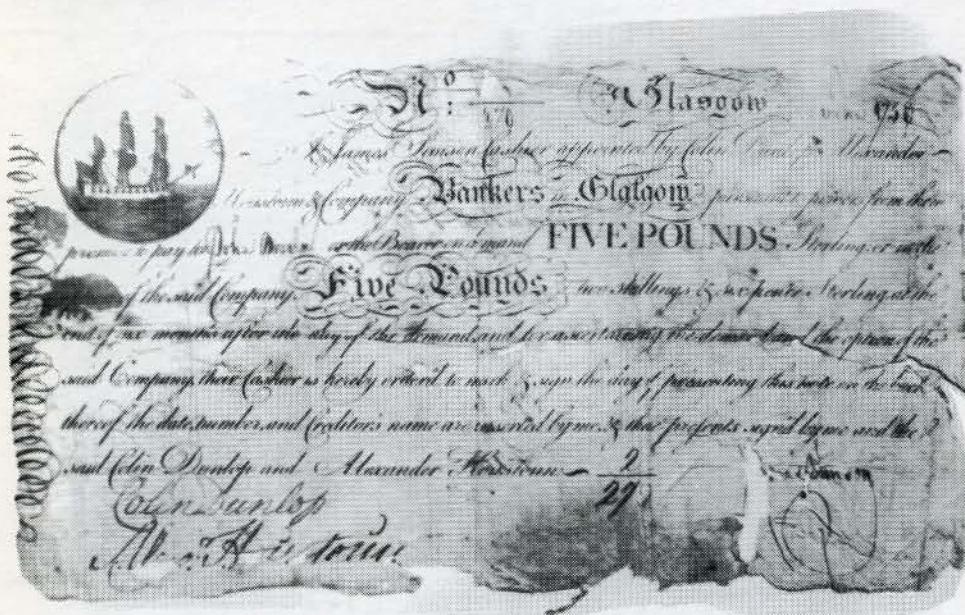 No. Glasgow
James Simson Cashier appointed by Colin Dunlop Alexander
Houstoun & Company Bankers in Glasgow pursuant to powers from them
promise to pay to or the Bearer on demand FIVE POUNDS Sterling or
of the said Company Five Pounds two shillings & six pence Sterling at the
end of six months after the day of the demand and for ascertaining the demand and the option of the
said Company their Cashier is hereby ordered to mark & sign the day of presenting this note on the back
thereof the date, number and Creditors name are inserted by me & these presents signed by me and the
said Colin Dunlop and Alexander Houstoun 2
Colin Dunlop 29
Alex Houstoun